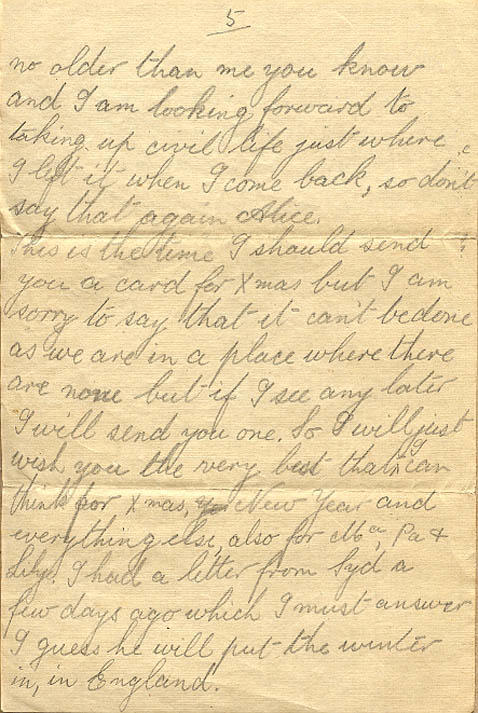 5
no older than me you know
and I am looking forward to
taking up civil life just where
I left it when I come back, so don't
say that again Alice.
This is the time I should send
you a card for Xmas but I am
sorry to say that it can't be done
as we are in a place where there
are none but if I see any later
I will send you one. So I will just
wish you the very best that I can
think for Xmas, New Year and
everything else, also for Ma, Pa &
Lily. I had a letter from Syd a
few days ago which I must answer
I guess he will put the winter
in, in England.